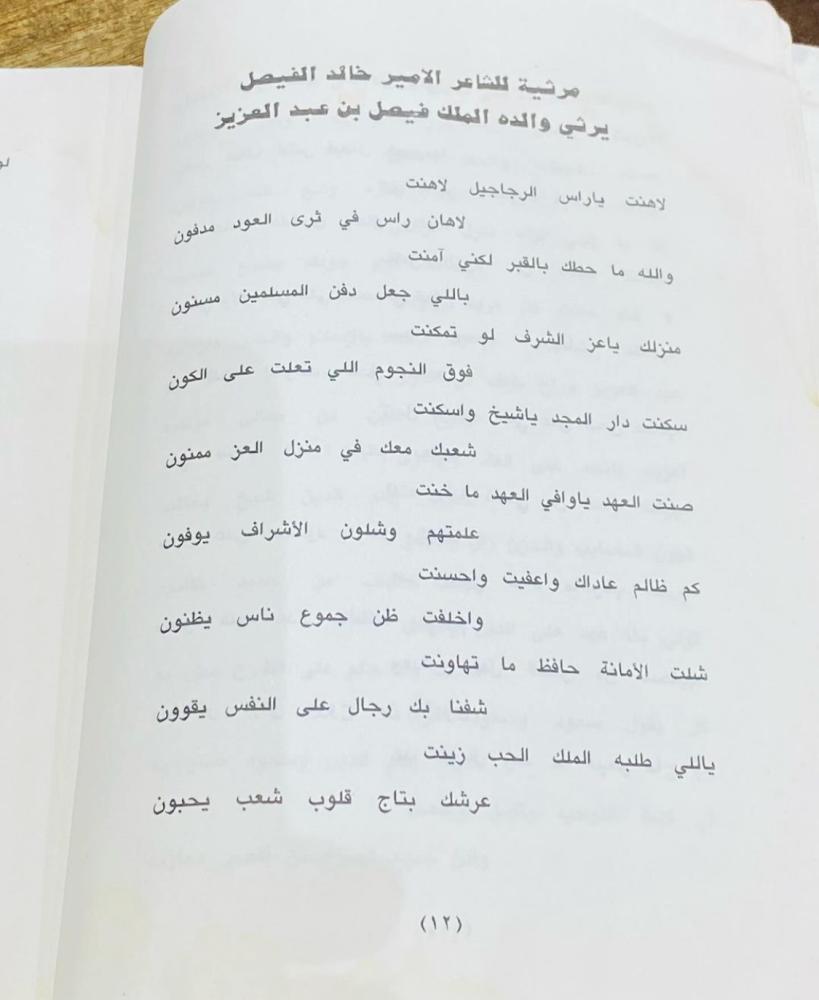 مرثية للشاعر الامير خالد الفيصل
يرثي والده الملك فيصل بن عبد العزيز
لاهنت ياراس الرجاجيل لاهنت
لاهان راس في ثرى العود مدفون
والله ما حطك بالقبر لكني آمنت
باللي جعل دفن المسلمين مسنون
منزلك ياعز الشرف لو تمكنت
فوق النجوم اللي تعلت على الكون
سكنت دار المجد ياشيخ واسكنت
شعبك معك في منزل العز ممنون
صنت العهد ياوافي العهد ما خنت
علمتهم وشلون الأشراف يوفون
كم ظالم عاداك واعفيت واحسنت
واخلفت ظن جموع ناس يظنون
شلت الأمانة حافظ ما تهاونت
شفنا بك رجال على النفس يقوون
ياللي طلبه الملك الحب زينت
عرشك بتاج قلوب شعب يحبون
(١٢)